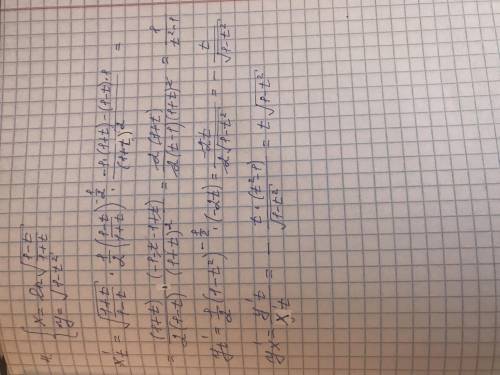 4. { x = ln √((1-t)/(1+t))
y = √(1-t²)
x't = √((1+t)/(1-t)) · 1/2 ((1-t)/(1+t))^(-1/2) · (-1·(1+t) - (1-t)·1)/(1+t)² =
= (1+t)/(2(1-t)) · (-1-t-1+t)/(1+t)² = -2(1+t)/(2(t-1)(1+t)²) = 1/(t²-1)
y't = 1/2 (1-t²)^(-1/2) · (-2t) = -2t/(2√(1-t²)) = - t/√(1-t²)
y'x = y't/x't = - t·(t²-1)/√(1-t²) = t√(1-t²)